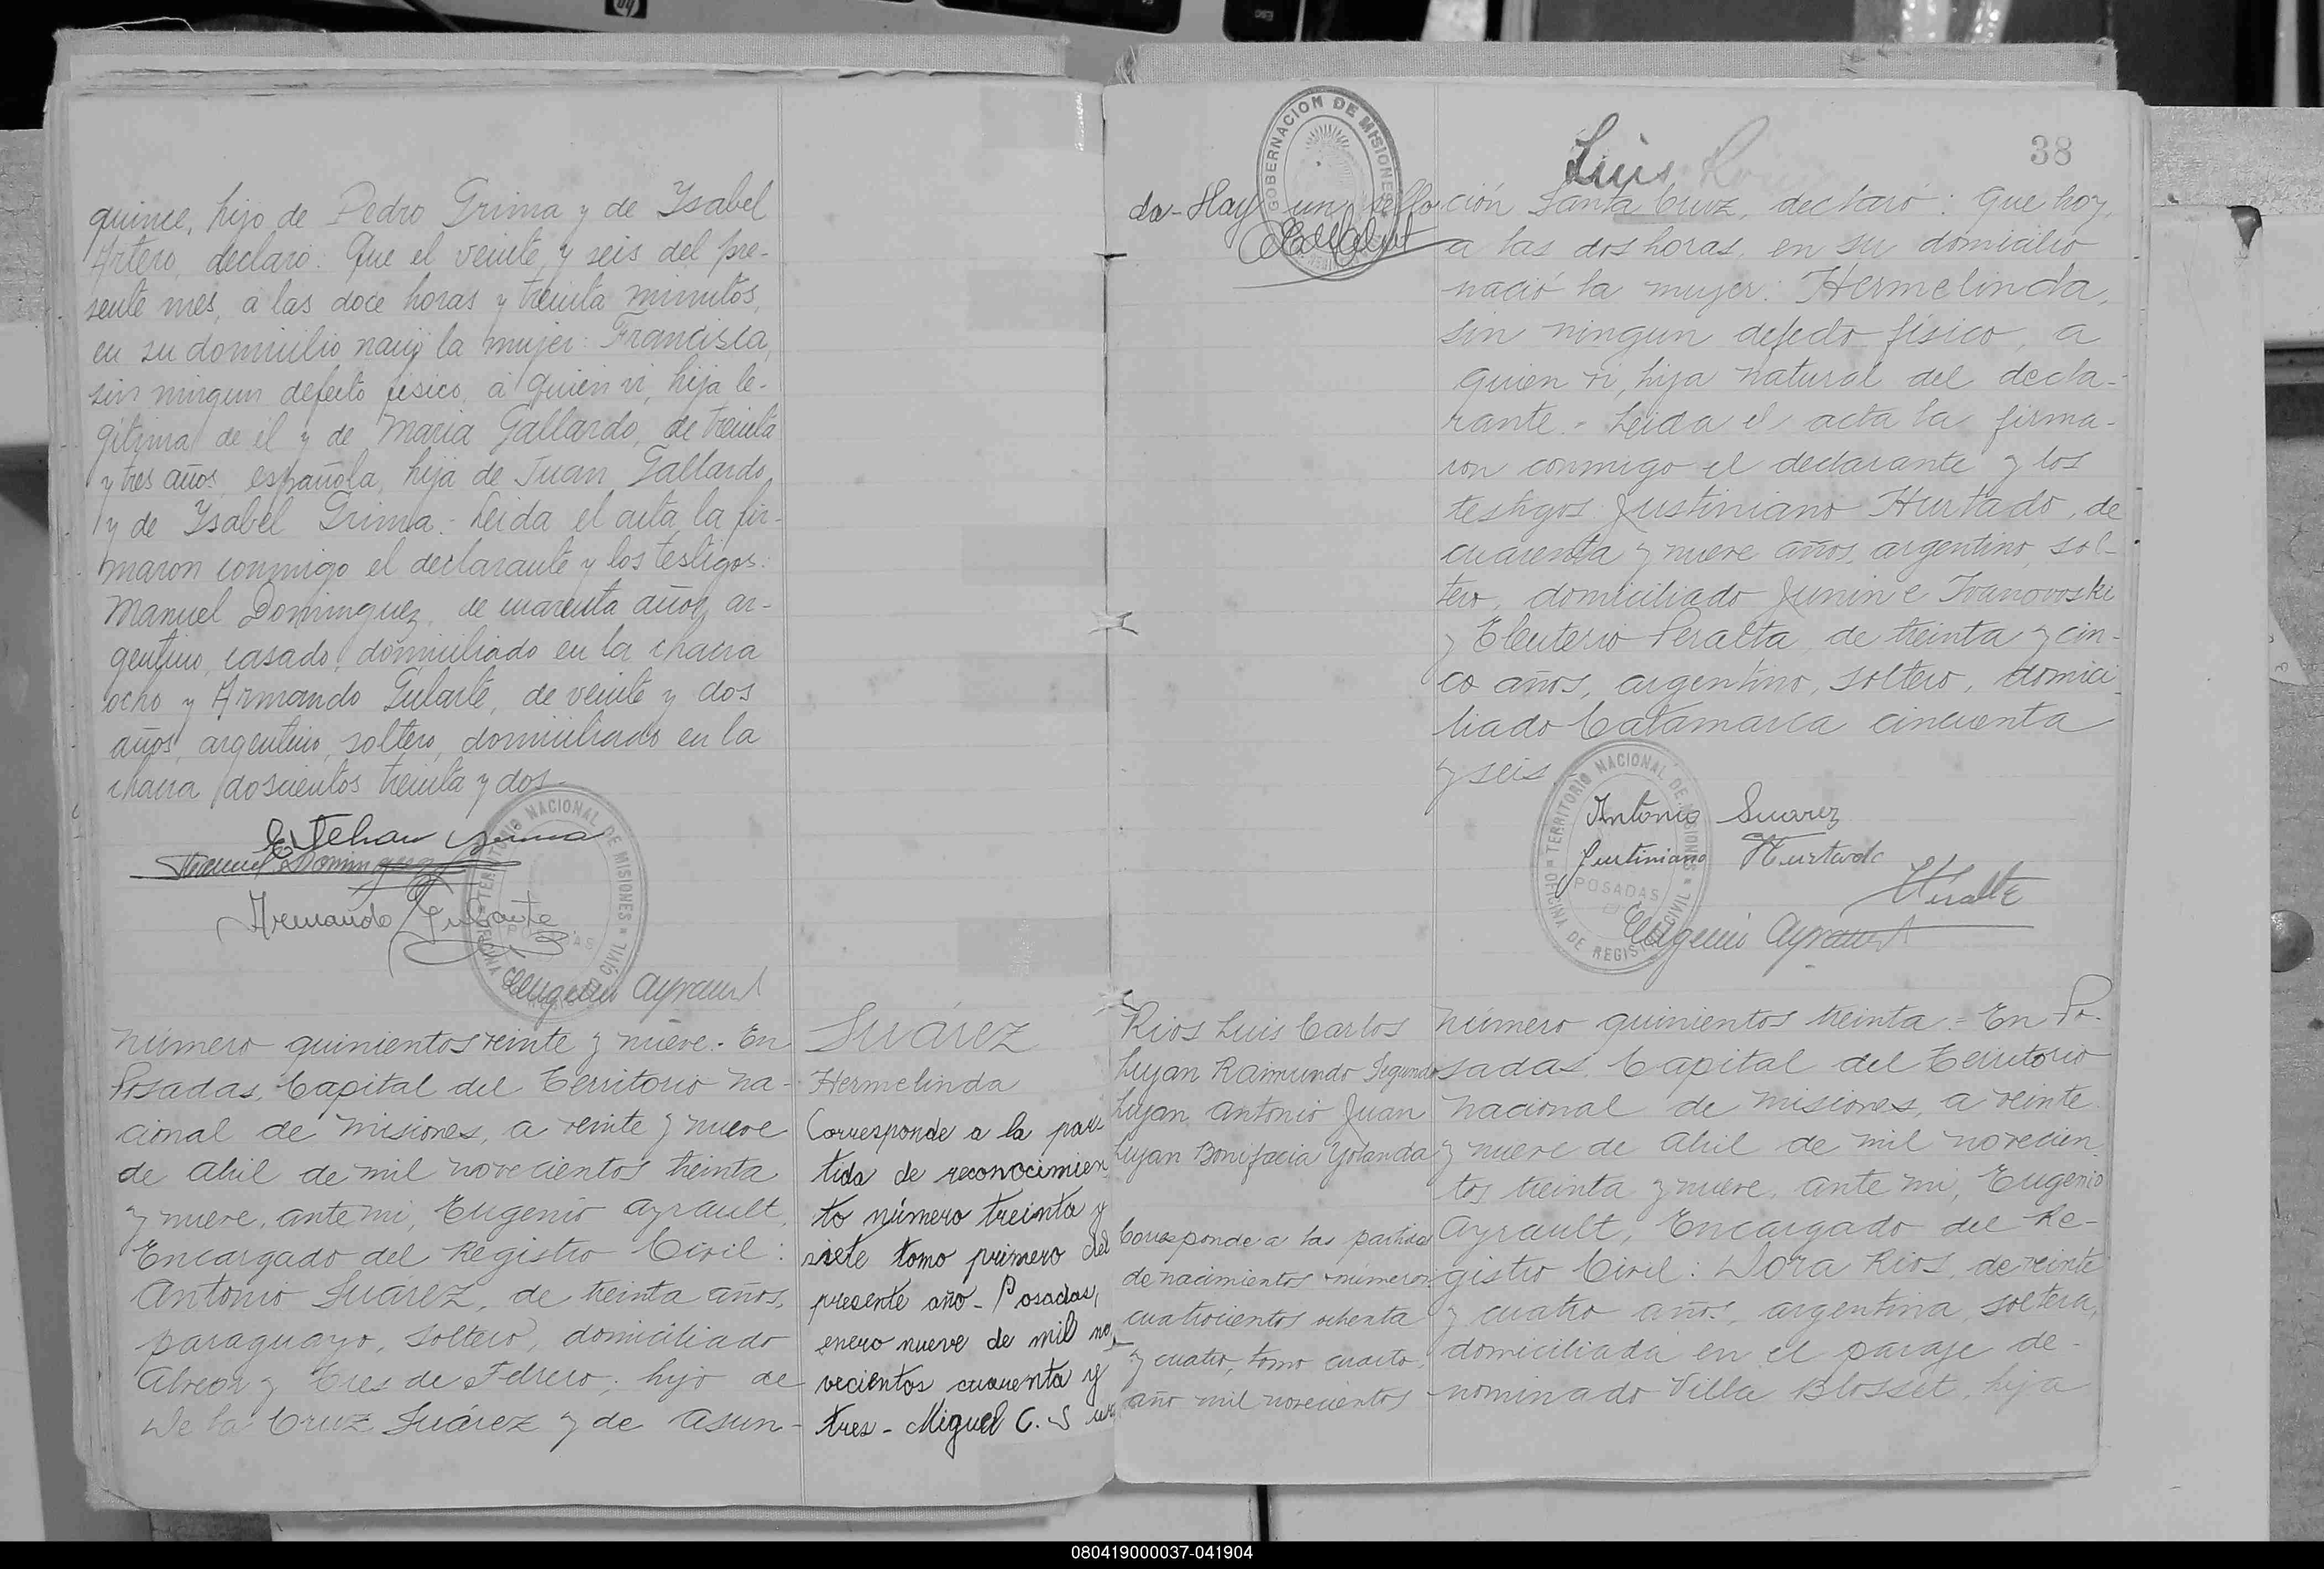 quince, hijo de Pedro Grima y de Ysabel
Artero, declaró: Que el veinte y seis del pre-
sente mes, a las doce horas y treinta minutos,
en su domicilio nació la mujer: Francisca,
sin ningun defecto fisico, a quien vi, hija le-
gitima de él y de Maria Gallardo, de treinta
y tres años, española, hija de Juan Gallardo
y de Ysabel Grima.- Leida el acta, la fir-
maron conmigo el declarante y los testigos:
Manuel Dominguez, de cuarenta años, ar-
gentino, casado, domiciliado en la chacra
ocho y Armando Gularte, de veinte y dos
años, argentino, soltero, domiciliado en la
chacra doscientos treinta y dos.-
Esteban Grima
Manuel Dominguez
Armando Gularte
TERRITORIO NACIONAL DE MISIONES
OFICINA DE REGISTRO CIVIL
POSADAS
Eugenio Ayrault
Número quinientos veinte y nueve.- En
Posadas, Capital del Territorio na-
cional de Misiones, a veinte y nueve
de Abril de mil novecientos treinta
y nueve, ante mi, Eugenio Ayrault,
Encargado del Registro Civil:
Antonio Suárez, de treinta años,
paraguayo, soltero, domiciliado
Alvear y Tres de Febrero; hijo de
De la Cruz Suárez y de Asun-
Suárez
Hermelinda
Corresponde a la par
tida de reconocimien
to número treinta y
siete tomo primero del
presente año - Posadas,
enero nueve de mil no
vecientos cuarenta y
tres - Miguel C.
38
GOBERNACION DE MISIONES
Luis
da - Hay un sello
ción Santa Cruz, declaró: Que hoy,
a las dos horas, en su domicilio
nació la mujer: Hermelinda,
sin ningun defecto fisico, a
quien vi, hija natural del decla-
rante.- Leida el acta la firma-
ron conmigo el declarante y los
testigos: Justiniano Hurtado, de
cuarenta y nueve años, argentino, sol-
tero, domiciliado Junin e Ivanovoski
y Eleuterio Peralta, de treinta y cin-
co años, argentino, soltero, domici
liado Catamarca cincuenta
y seis.
TERRITORIO NACIONAL DE MISIONES
OFICINA DE REGISTRO CIVIL
POSADAS
Antonio Suarez
Justiniano Hurtado
Eugenio Ayrault
Rios Luis Carlos
Luyan Raimundo Segundo
Luyan Antonio Juan
Luyan Bonifacia Yolanda
Corresponde a las partidas
de nacimientos números
cuatrocientos ochenta
y cuatro, tomo cuarto,
año mil novecientos
Número quinientos treinta.- En Po-
sadas, Capital del Territorio
nacional de Misiones, a veinte
y nueve de Abril de mil novecien
tos treinta y nueve, ante mi, Eugenio
Ayrault, Encargado del Re-
gistro Civil: Dora Rios, de veinte
y cuatro años, argentina, soltera,
domiciliada en el paraje de-
nominado Villa Blosset, hija
080419000037-041904